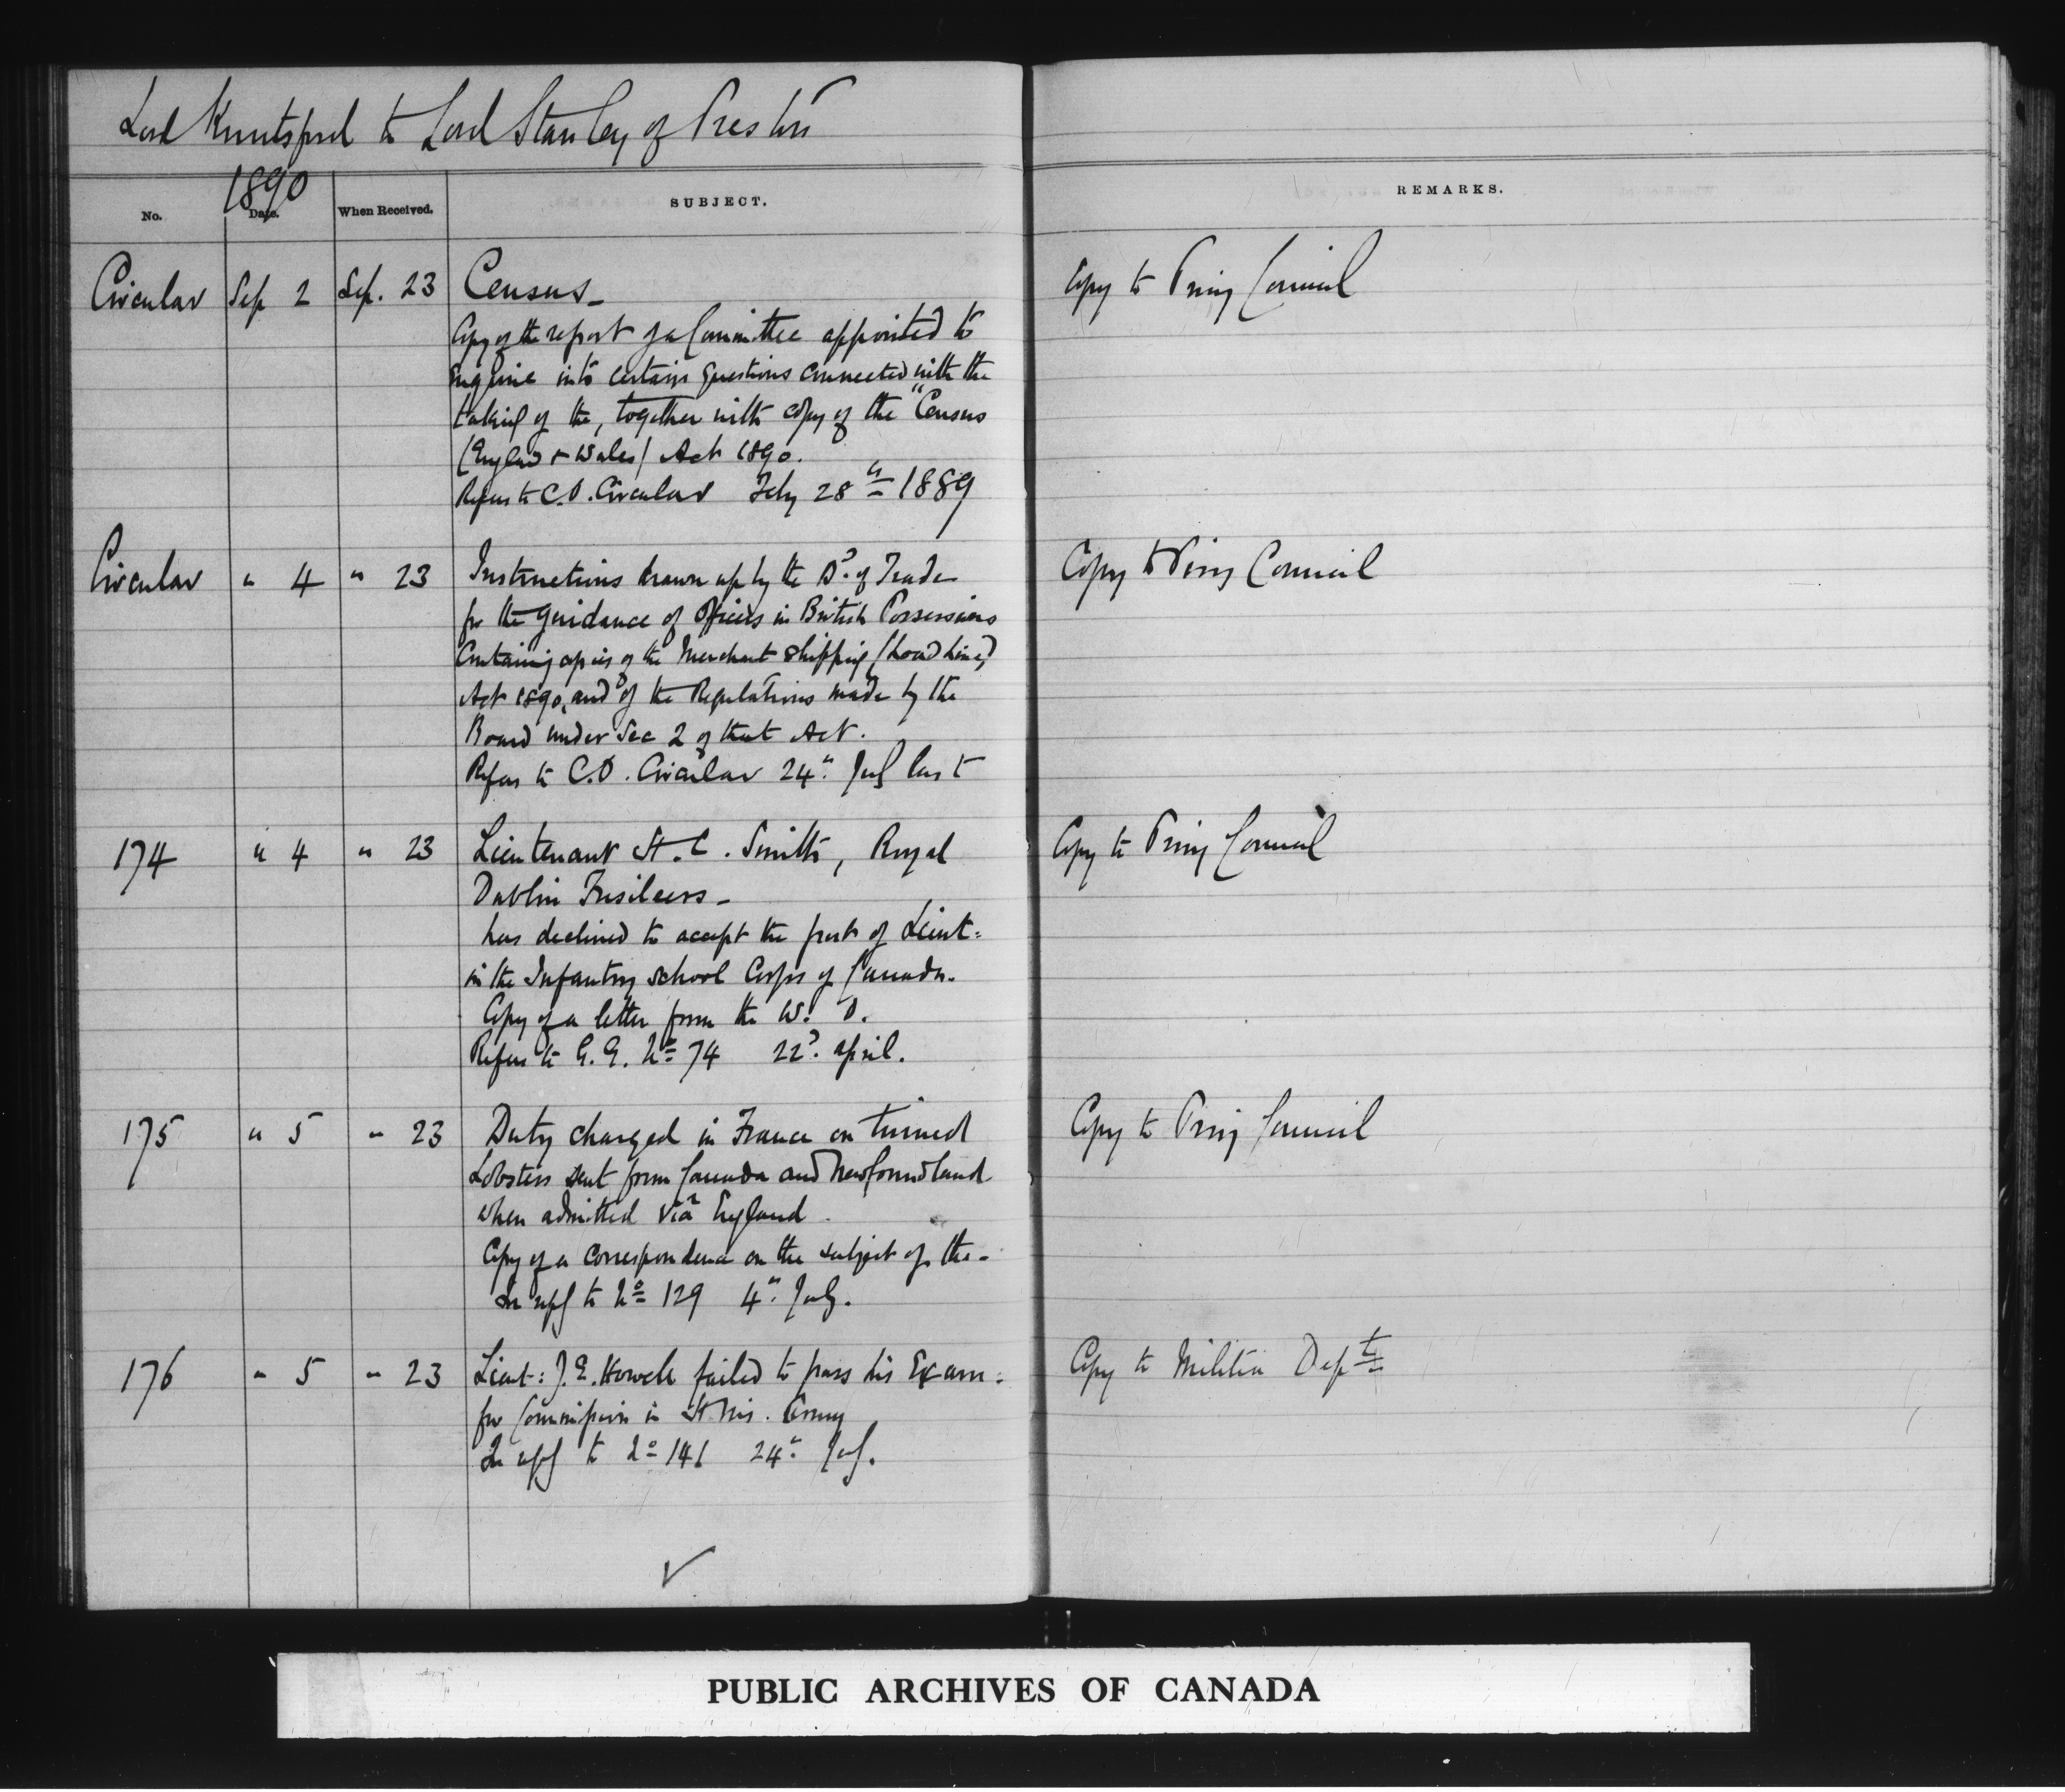 Lord Knutsford to Lord Stanley of Preston
1890
No. Date. When Received. SUBJECT. REMARKS.
Circular Sep 2 Sep. 23 Census_ Copy to Privy Council
Copy of the report of a Committee appointed to
enquire into certain questions connected with the
taking of the, together with copy of the "Census
(England & Wales) Act 1890.
Refers to C.O. Circular Feby 28th 1889
Circular " 4 " 23 Instructions drawn up by the Bd. of Trade Copy to Privy Council
for the guidance of Officers in British Possessions
Containing copies of the Merchant Shipping (Load Line)
Act 1890, and of the Regulations made by the
Board under Sec 2 of that Act.
Refers to C.O. Circular 24th July last
174 " 4 " 23 Lieutenant H. C. Smith, Royal Copy to Privy Council
Dublin Fusileers_
has declined to accept the post of Lieut:
in the Infantry School Corps of Canada.
Copy of a letter from the W. O.
Refers to G. G. No 74 22d. April.
175 " 5 " 23 Duty charged in France on tinned Copy to Privy Council
Lobsters sent from Canada and Newfoundland
when admitted via England
Copy of a correspondence on the subject of the_
In reply to No 129 4th July.
176 " 5 " 23 Lieut: J. E. Howell failed to pass his Exam: Copy to Militia Dept
for Commission in H. M's. Army
In reply to No 141 24th July.
PUBLIC ARCHIVES OF CANADA